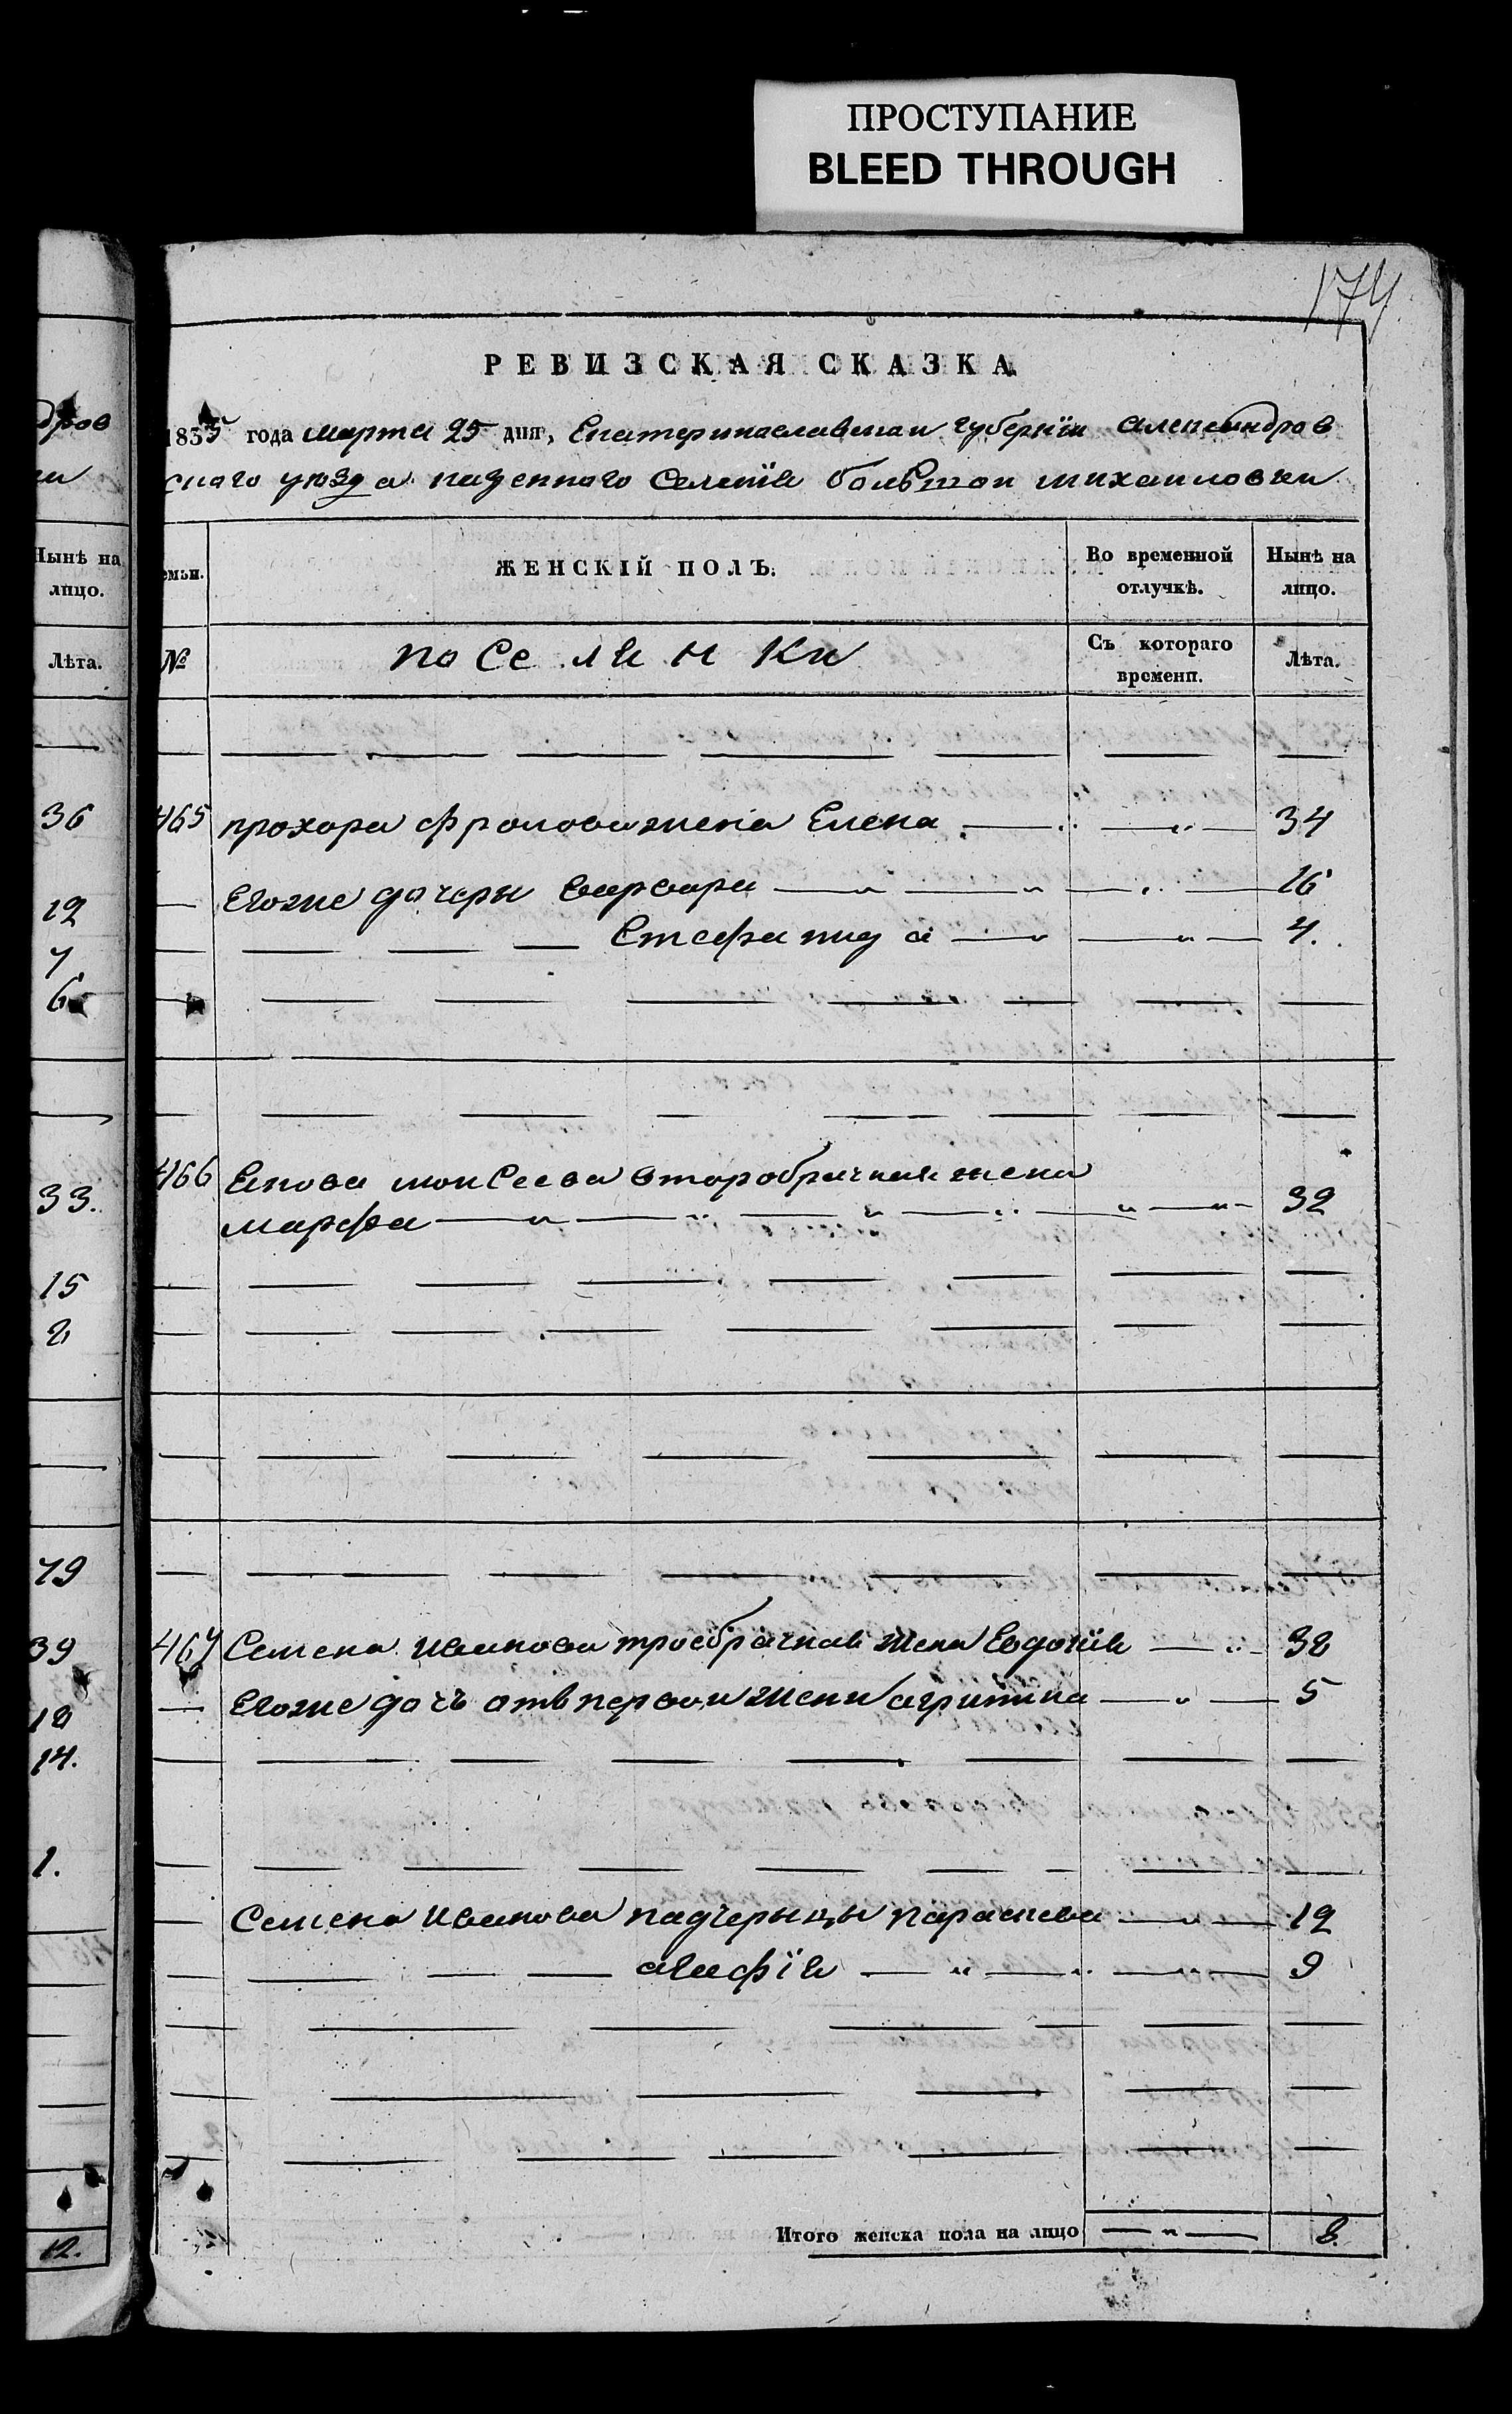 ПРОСТУПАНИЕ
BLEED THROUGH
174
РЕВИЗСКАЯ СКАЗКА
1835 года марта 25 дня, Екатеринославской губерніи Александров
скаго уезда казенного Селенія большой михаиловки
дров
ки
Нынѣ на
лицо.
Лѣта.
36
12
7
6
33.
15
2
79
39
18
14.
1.
12.
емьи.
ЖЕНСКІЙ ПОЛЪ.
Во временной
отлучкѣ.
Нынѣ на
лицо.
№
поселянки
Съ котораго
времени.
Лѣта.
465 прохора фролова жена Елена 34
Егоже дочеры варвара 16
Стефанида 4.
466 Якова моисеева второбрачная жена
марфа 32
467 Семена иванова троебрачная жена Евдокія 38
Егоже дочъ отъ первой жены агрипина 5
Семена иванова падчерыцы параскева 12
агафія 9
Итого женска пола на лицо 8.